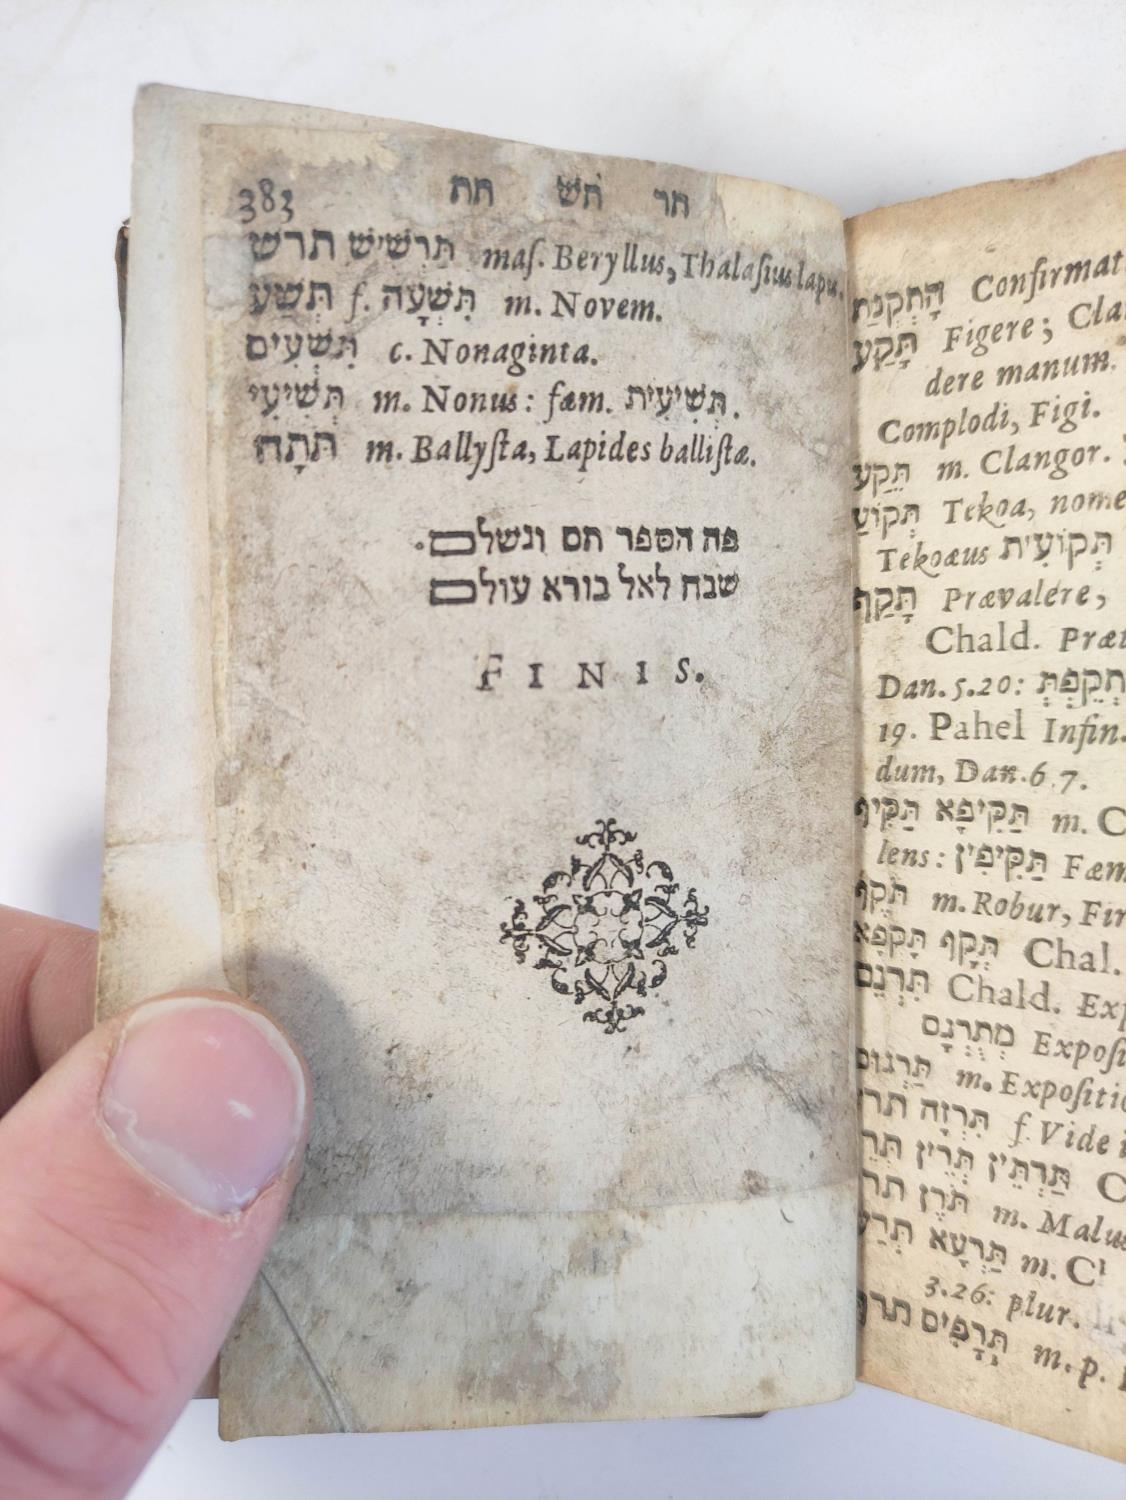 383 תר תש תת
תרש תַּרְשִׁישׁ maſ. Beryllus, Thalaſius lapis.
תֵּשַׁע f. תִּשְׁעָה m. Novem.
תִּשְׁעִים c. Nonaginta.
תְּשִׁיעִי m. Nonus: fæm. תְּשִׁיעִית.
תֹּתָח m. Ballyſta, Lapides balliſtæ.
פה הספר תם ונשלם
שבח לאל בורא עולם
FINIS.
הָתְקְנַת Confirmat
תָּקַע Figere; Clan
dere manum.
Complodi, Figi.
תֵּקַע m. Clangor.
תְּקוֹעַ Tekoa, nome
Tekoæus תְּקוֹעִית
תָּקַף Prævalére,
Chald. Præt
Dan. 5.20: תְּקֵפְתְּ
19. Pahel Infin.
dum, Dan. 6 7.
תַּקִּיף תַּקִּיפָא m. C
lens: תַּקִּיפִין Fæm
תֹּקֶף m. Robur, Fir
תְּקָף תָּקְפָא Chal.
תִּרְגֵּם Chald. Exp
מְתֻרְגָּם Expoſi
תַּרְגּוּם m. Expoſitio
תרז תִּרְזָה f. Vide i
תְּרֵי תְּרֵין תַּרְתֵּין C
תרן תֹּרֶן m. Malus
תְּרַע תַּרְעָא m. C
3.26: plur.
תרף תְּרָפִים m. p.